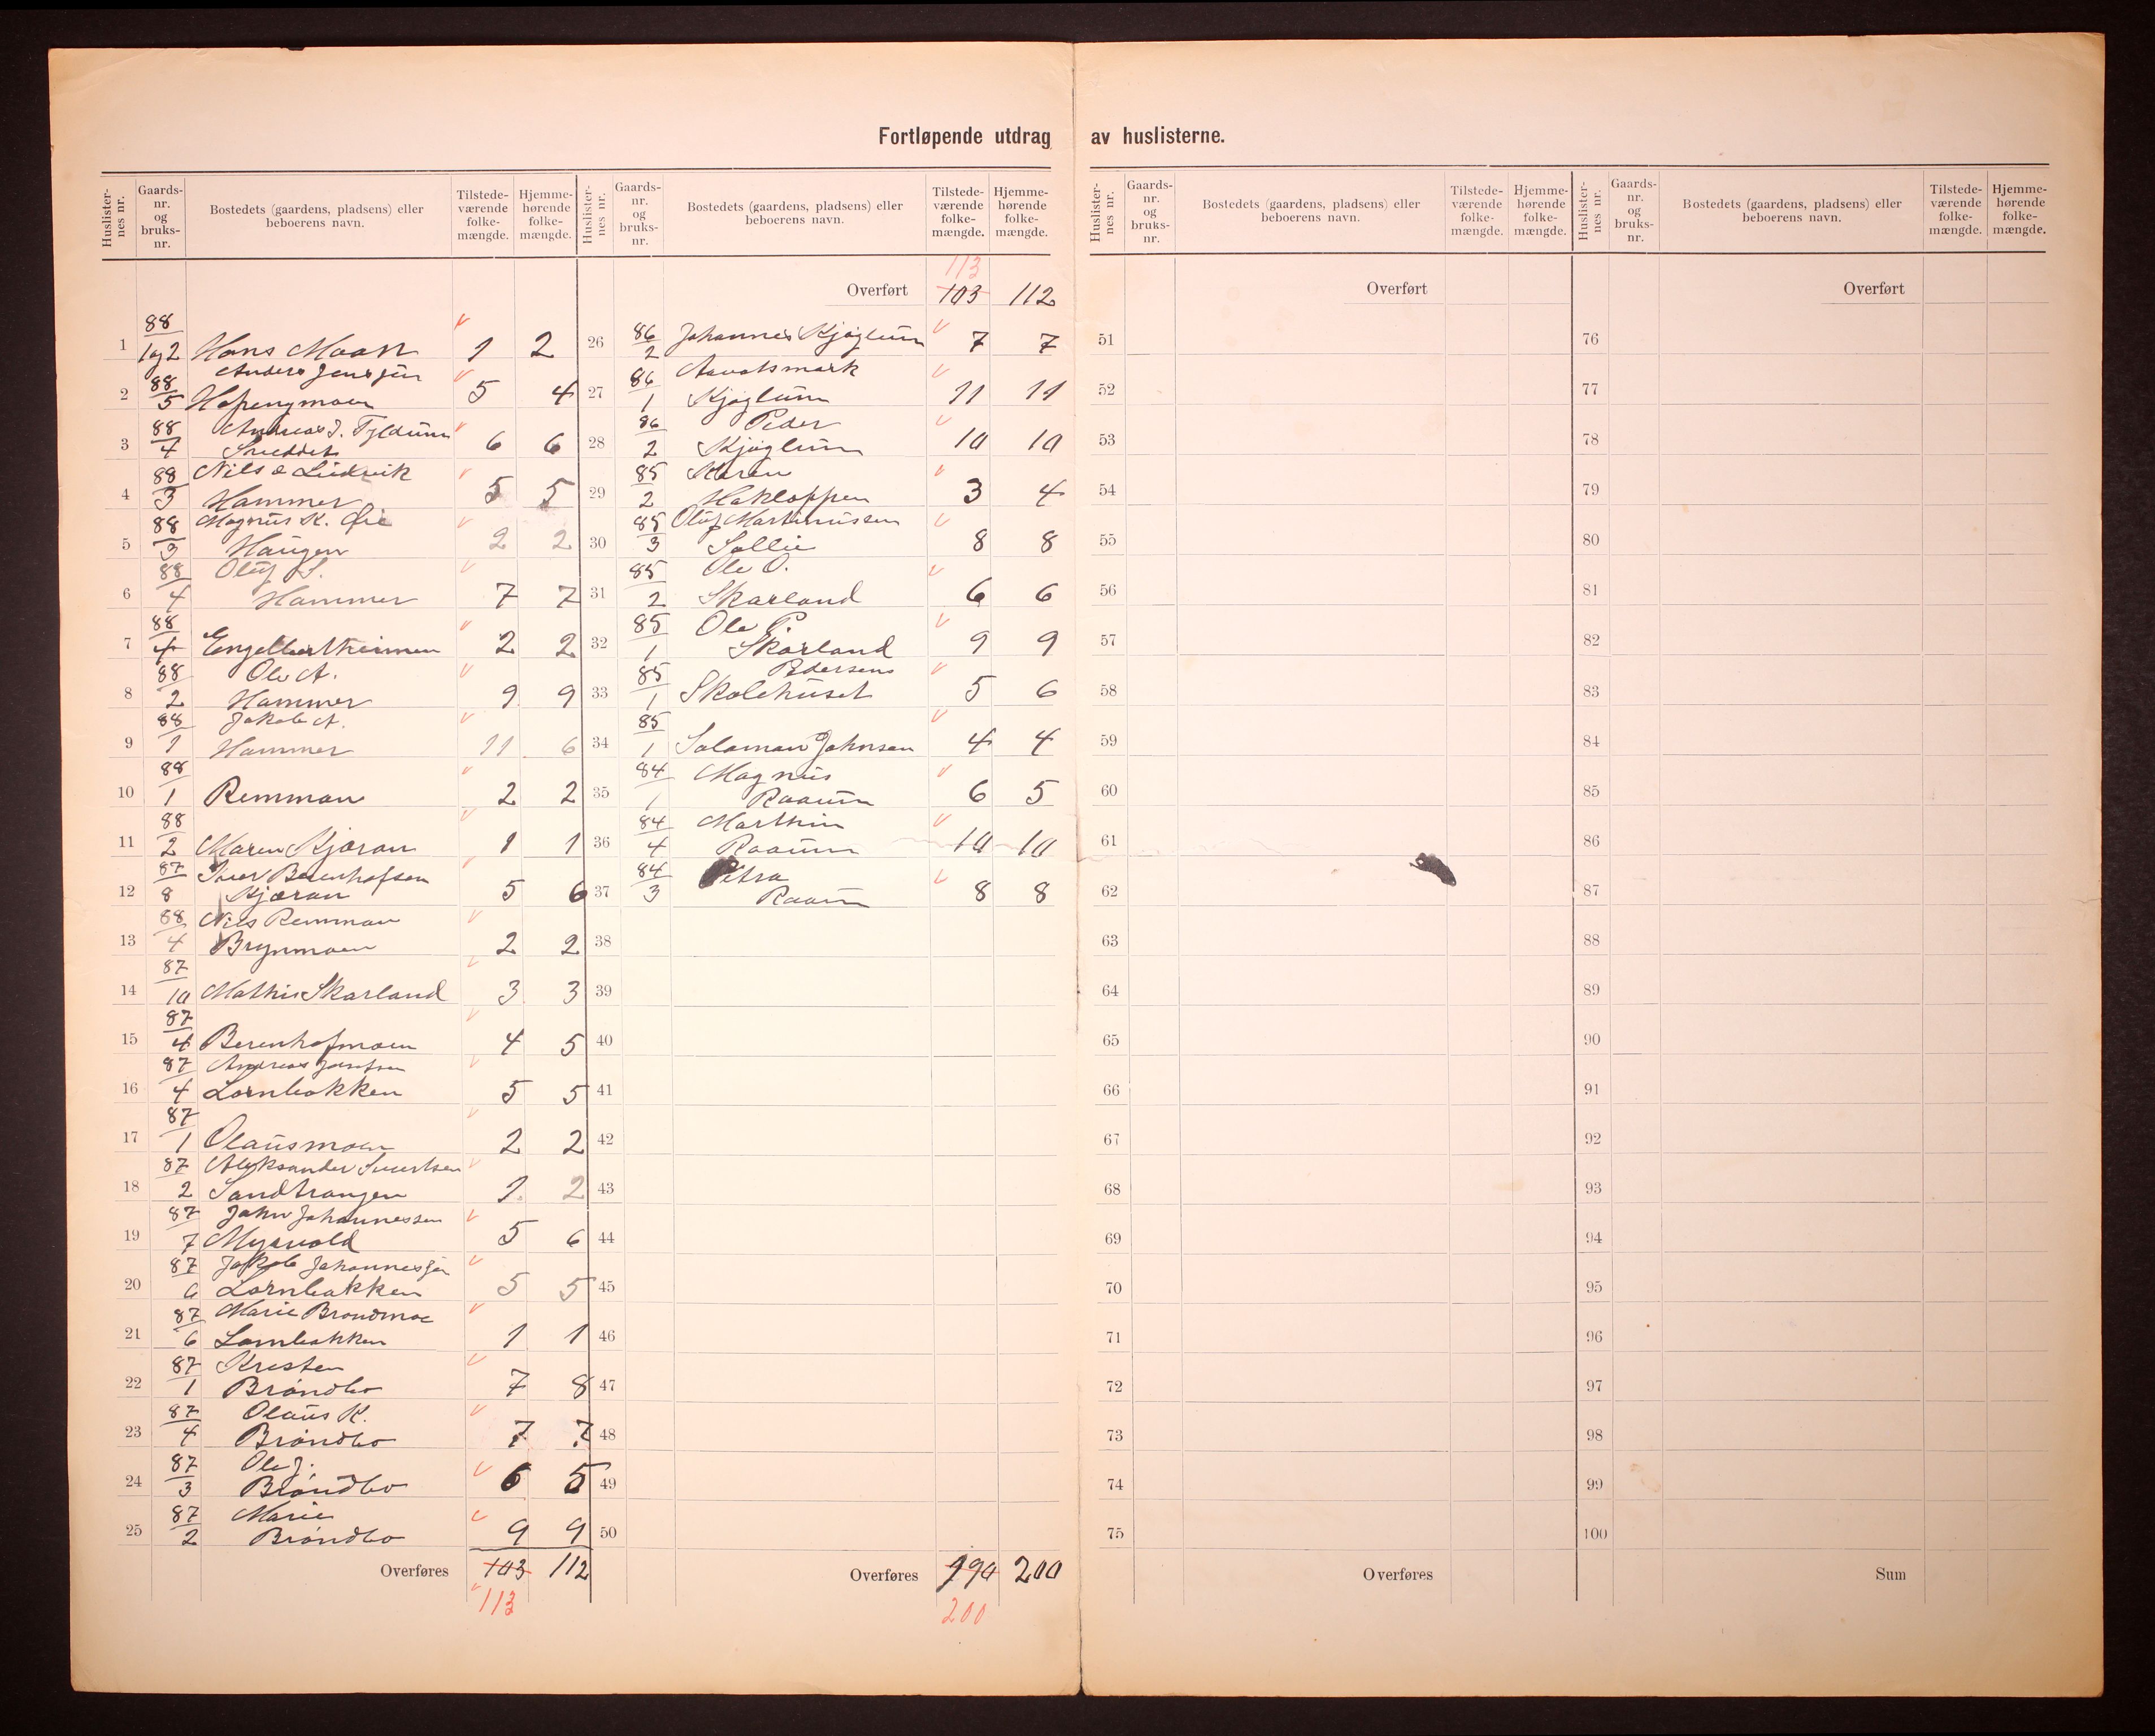 Fortløpende utdrag av huslisterne.
Huslisternes nr. Gaards-nr. og bruks-nr. Bostedets (gaardens, pladsens) eller beboerens navn. Tilstedeværende folkemængde. Hjemmehørende folkemængde.
1 88/1 og 2 Hans Moan 1 2
2 88/5 Anders Jenssen 5 4
3 88/4 Andreas J. Fyldum 6 6
4 88/3 Nils & Ludvik Hammer 5 5
5 88/3 Magnus K. Øie Haugen 2 2
6 88/4 Oluf S. Hammer 7 7
7 88/4 2 2
8 88/2 Ole A. Hammer 9 9
9 88/1 Jakob A. Hammer 11 6
10 88/1 Remman 2 2
11 88/2 Maren Kjæran 1 1
12 87/8 Iver Berenhofsen Kjæran 5 6
13 88/4 Nils Remman Brynmoen 2 2
14 87/10 Mathis Skarland 3 3
15 87/4 Berenhofmoen 4 5
16 87/4 Andreas Lornbakken 5 5
17 87/1 Olausmoen 2 2
18 87/2 Aleksander Sivertsen 1 2
19 87/7 John Johannessen Myrvold 5 6
20 87 Jakob Johannessen Lornbakken 5 5
21 87/6 Marie Brøndmoe Lornbakken 1 1
22 87/1 Kristen Brøndbo 7 8
23 87/4 Olaus K. Brøndbo 7 7
24 87/3 Ole J. Brøndbo 6 5
25 87/2 Marie Brøndbo 9 9
Overføres 103 112
113
Huslisternes nr. Gaards-nr. og bruks-nr. Bostedets (gaardens, pladsens) eller beboerens navn. Tilstedeværende folkemængde. Hjemmehørende folkemængde.
113
Overført 103 112
26 86/2 Johannes Kjøglum 7 7
27 86/1 Kjøglum 11 11
28 86/2 Peder Kjøglum 10 10
29 85/2 Karen Hakloppen 3 4
30 85/3 Oluf Martinussen Sollie 8 8
31 85/2 Ole O. Skarland 6 6
32 85/1 Ole P. Skarland 9 9
33 85/1 Pedersens Skolehuset 5 6
34 85/1 Salamon Johnsen 4 4
35 84/1 Magnus Raaum 6 5
36 84/4 Marthin Raaum 10 10
37 84/3 Petra Raaum 8 8
38
39
40
41
42
43
44
45
46
47
48
49
50
Overføres 190 200
200
Huslisternes nr. Gaards-nr. og bruks-nr. Bostedets (gaardens, pladsens) eller beboerens navn. Tilstedeværende folkemængde. Hjemmehørende folkemængde.
Overført
51
52
53
54
55
56
57
58
59
60
61
62
63
64
65
66
67
68
69
70
71
72
73
74
75
Overføres
Huslisternes nr. Gaards-nr. og bruks-nr. Bostedets (gaardens, pladsens) eller beboerens navn. Tilstedeværende folkemængde. Hjemmehørende folkemængde.
Overført
76
77
78
79
80
81
82
83
84
85
86
87
88
89
90
91
92
93
94
95
96
97
98
99
100
Sum